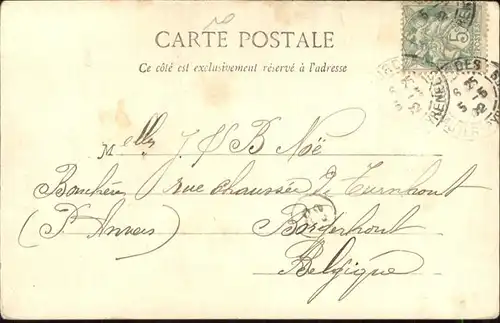 CARTE POSTALE
Ce côté est exclusivement réservé à l'adresse
Melles J & B Noë
rue chaussée de Turnhout
(Pr Anvers) Borgerhout
Belgique
5